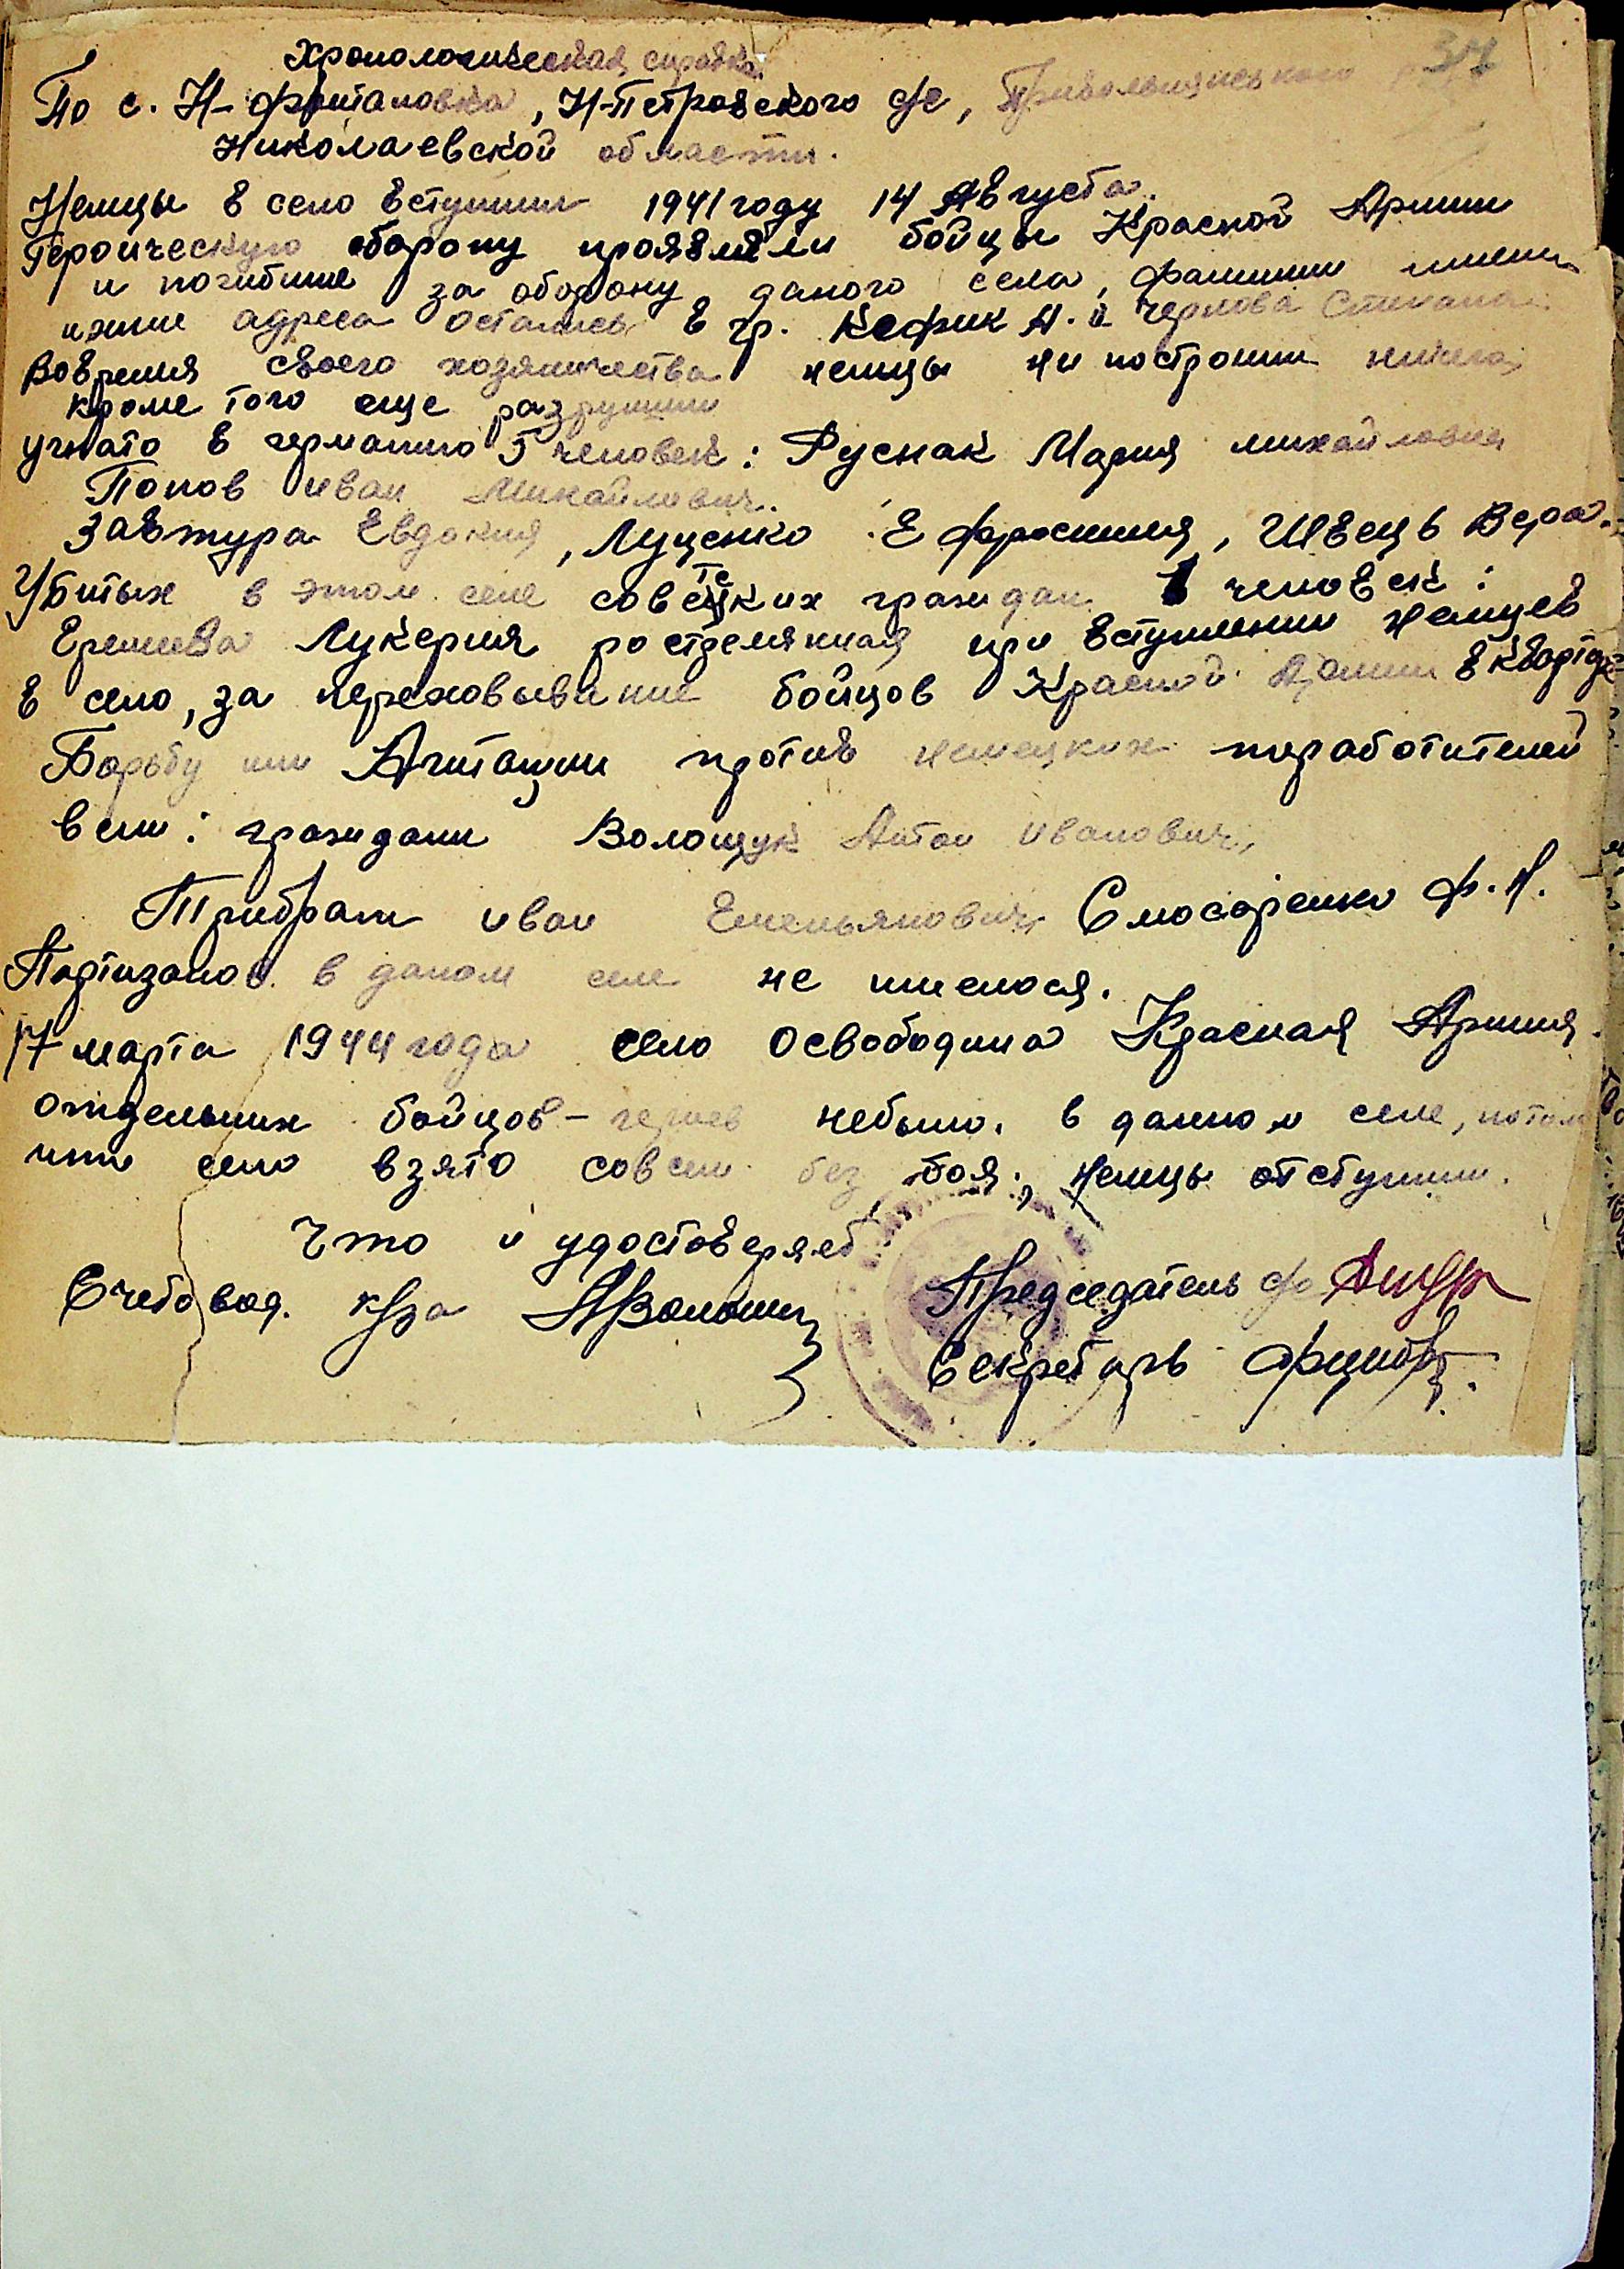 37
Хронологическая справка
По с. Н-Фонтановка, Н-Петровского с/с, Привольнянского
Николаевской области.
Немцы в село вступили 1941 году 14 Августа.
Героическую оборону проявляли бойцы Красной Армии
и погибшие за оборону даного села, фамилии имена
ихние адреса остались в гр. Кефик А. и Чернова Степана.
Вовремя своего хозяйничества немцы ни построили ничего,
кроме того еще разрушили
угнато в германию 5 человек: Руснак Мария михайловна
Попов иван Михайлович.
Завтура Евдокия, Луценко Ефросиния, Швець Вера.
Убитых в этом селе советских граждан 1 человек:
Еремеева Лукерия ростреляная при вступлении немцев
в село, за переховывание бойцов Красной Армии в квартире
Борьбу или Агитации против немецких поработителей
вели: граждани Волощук Антон иванович,
Прибрам иван Емельянович, Слюсаренко Ф. И.
Партизанов в даном селе не имелося.
17 марта 1944 года село освободила Красная Армия.
отдельних бойцов-героев небыло. в данном селе, потом
что село взято совсем без боя, немцы отступили.
Что и удостоверяет
Счетовод. к/за АВолошин
Председатель с/с
Секретарь